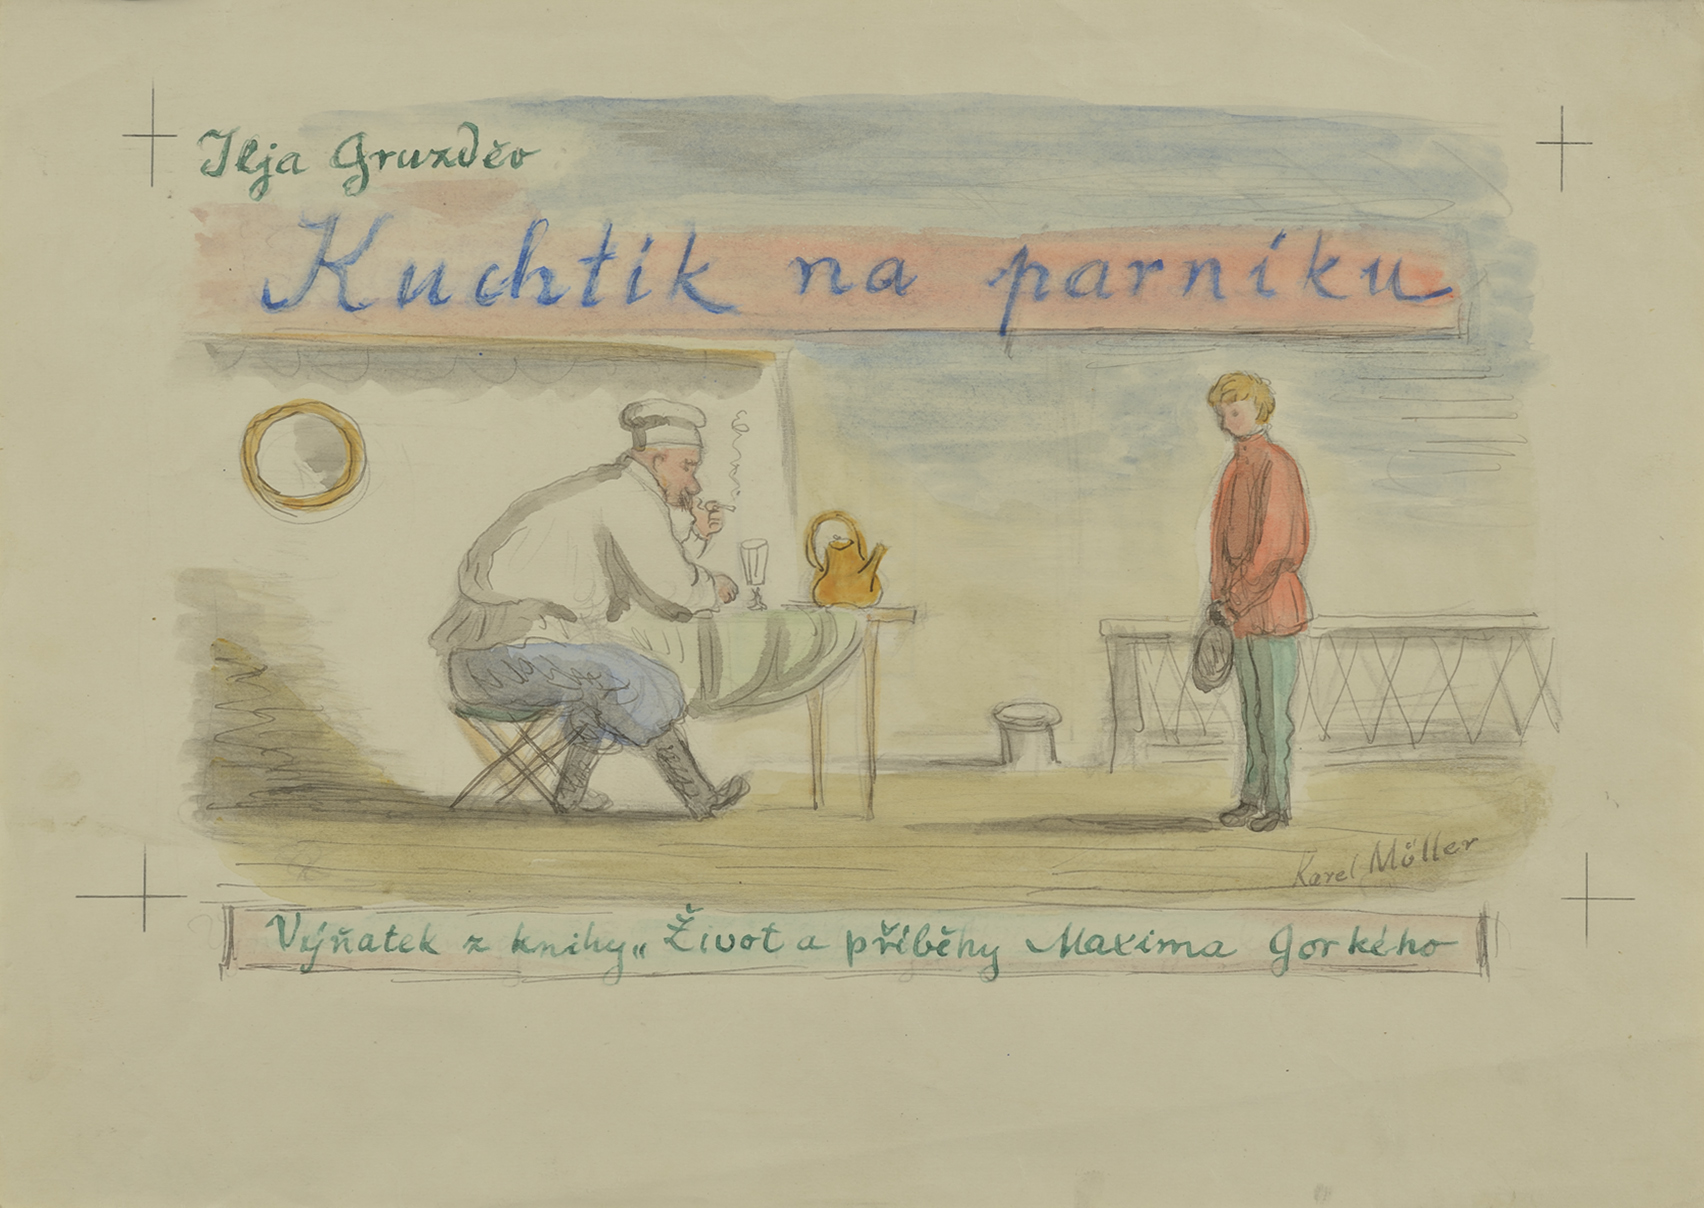 Ilja Gruzděv
Kuchtík na parníku
Karel Müller
Výňatek z knihy „Život a příběhy Maxima Gorkého